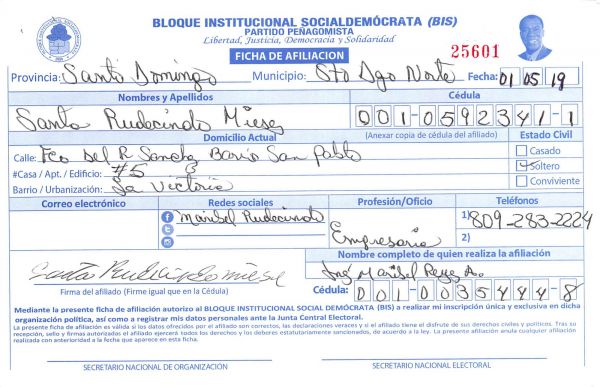 BLOQUE INSTITUCIONAL SOCIALDEMÓCRATA (BIS)
PARTIDO PEÑAGOMISTA
Libertad, Justicia, Democracia y Solidaridad
FICHA DE AFILIACION
25601
Provincia: Santo Domingo Municipio: Sto Dgo Norte Fecha: 01 05 19
Nombres y Apellidos Cédula
Santo Rudecindo Mieses 001-0592341-1
Domicilio Actual (Anexar copia de cédula del afiliado) Estado Civil
Calle: Fco del R Sanchez Barrio San Pablo Casado
#Casa / Apt. / Edificio: #5 B Soltero
Barrio / Urbanización: La Victoria Conviviente
Correo electrónico Redes sociales Profesión/Oficio Teléfonos
Marisel Rudecindo Empresario 1) 809-283-2224
2)
Nombre completo de quien realiza la afiliación
Ing Marisel Reyes A.
Firma del afiliado (Firme igual que en la Cédula) Cédula: 001-0035444-8
Mediante la presente ficha de afiliación autorizo al BLOQUE INSTITUCIONAL SOCIAL DEMÓCRATA (BIS) a realizar mi inscripción única y exclusiva en dicha
organización política, así como a registrar mis datos personales ante la Junta Central Electoral.
La presente ficha de afiliación es válida si los datos ofrecidos por el afiliado son correctos, las declaraciones veraces y si el afiliado tiene el disfrute de sus derechos civiles y políticos. Tras su
recepción, sello y firmas autorizadas el afiliado ejercerá todos los derechos y los deberes estatutariamente sancionados, de acuerdo a la ley. La presente afiliación anula cualquier afiliación
realizada con anterioridad a la fecha que aparece en esta ficha.
SECRETARIO NACIONAL DE ORGANIZACIÓN SECRETARIO NACIONAL ELECTORAL